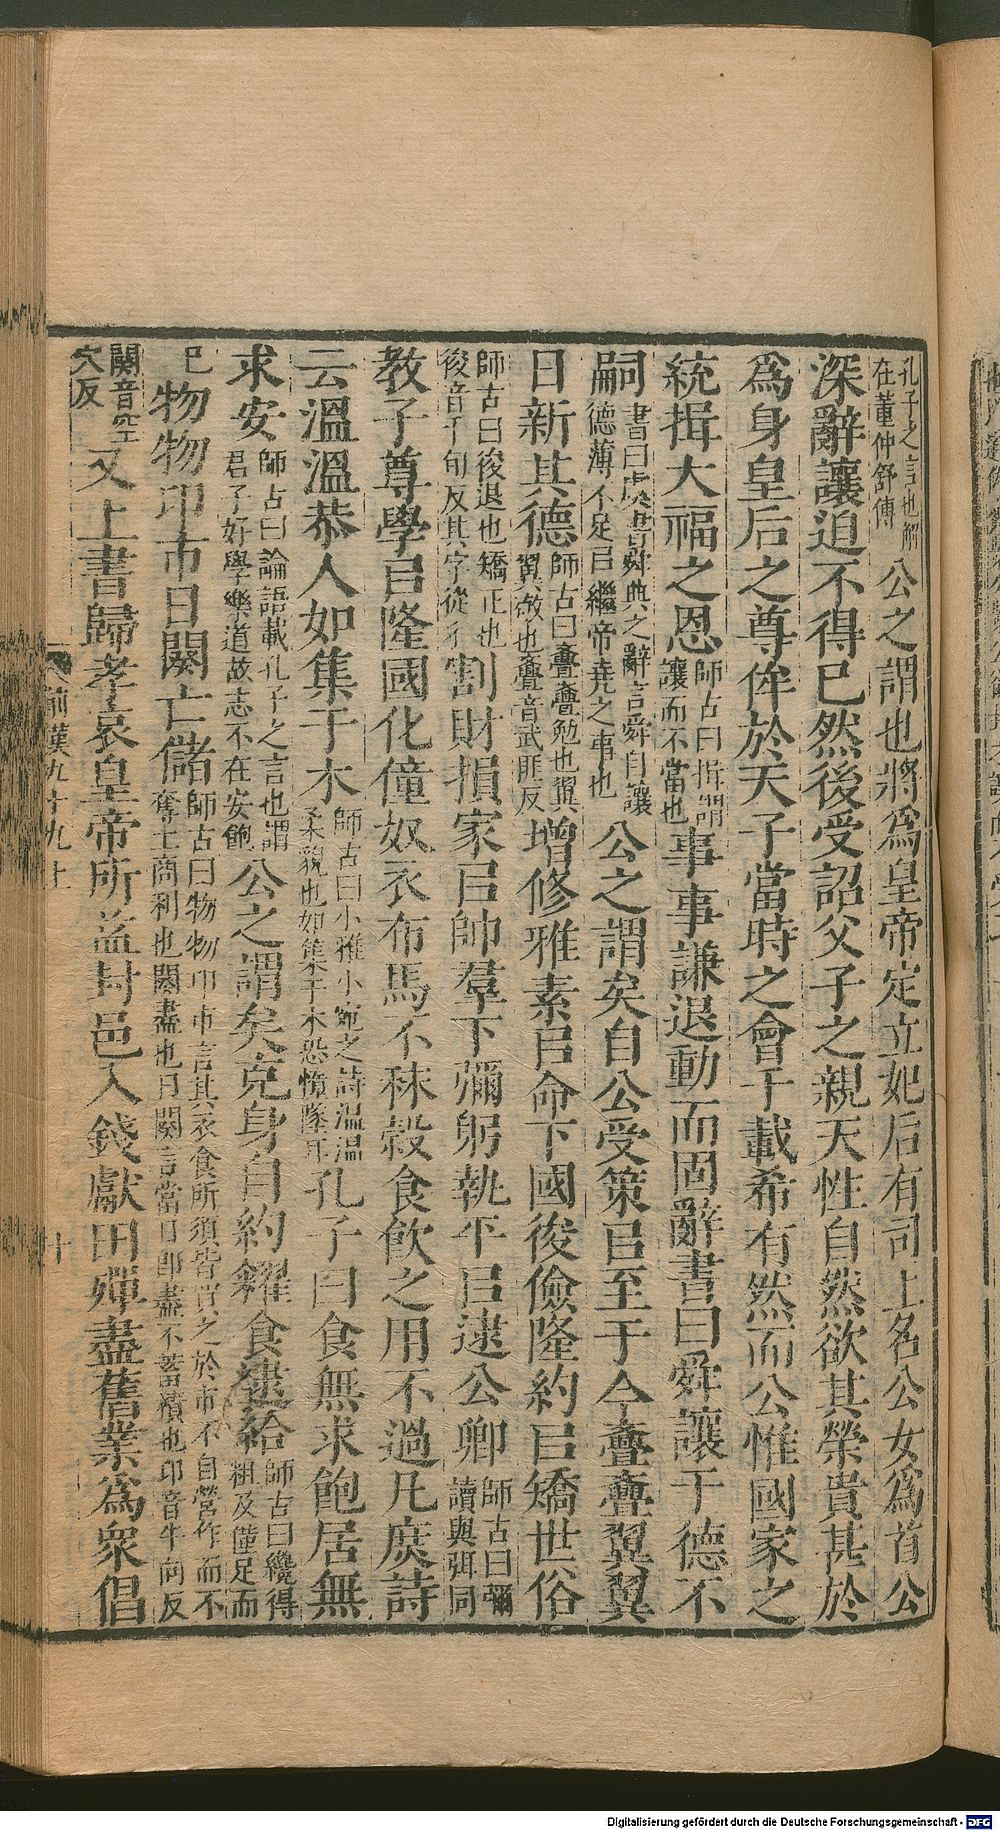 孔子之言也解在董仲舒傳公之謂也將爲皇帝定立妃后有司上名公女爲首公
深辭讓迫不得已然後受詔父子之親天性自然欲其榮貴甚於
爲身皇后之尊侔於天子當時之會千載希有然而公惟國家之
統揖大福之恩師古曰揖謂讓而不當也事事謙退動而固辭書曰舜讓于德不
嗣書曰虞書舜典之辭言舜自讓德薄不足㠯繼帝堯之事也公之謂矣自公受策㠯至于今亹亹翼翼
日新其德師古曰亹亹勉也翼翼敬也亹音武匪反增修雅素㠯命下國後儉隆約㠯矯世俗
師古曰後退也矯正也後音千旬反其字從彳割財損家㠯帥羣下彌躬執平㠯逮公卿師古曰彌讀與弭同
教子尊學㠯隆國化僮奴衣布馬不秣穀食飲之用不過凡庶詩
云溫溫恭人如集于木師古曰小雅小宛之詩溫溫柔貌也如集于木恐惰墜耳孔子曰食無求飽居無
求安師古曰論語載孔子之言也謂君子好學樂道故志不在安飽公之謂矣克身自約糴食逮給師古曰纔得粗及僅足而
已物物卬市日闋亡儲師古曰物物卬市言其衣食所須皆買之於市不自營作而不奪工商利也闋盡也日闋言當日卽盡不蓄積也卬音牛向反
闋音空穴反又上書歸孝哀皇帝所益封邑入錢獻田殫盡舊業爲衆倡
前漢九十九上
十
Digitalisierung gefördert durch die Deutsche Forschungsgemeinschaft - DFG